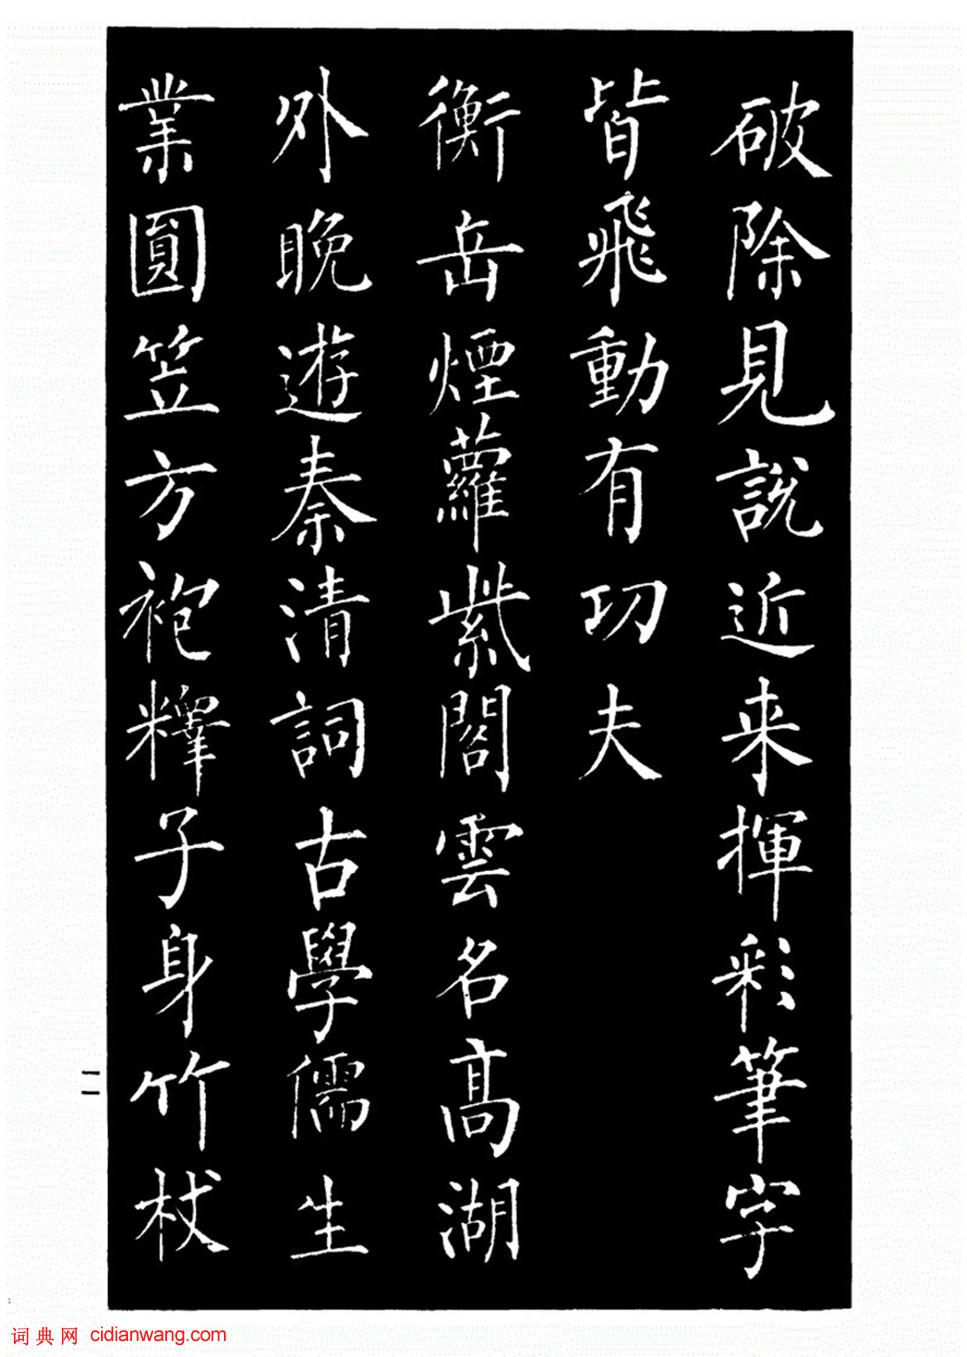 破除見說近来揮彩筆字
皆飛動有功夫
衡岳煙蘿紫閣雲名髙湖
外晚遊秦清詞古學儒生
業圓笠方袍釋子身竹杖
二
词典网 cidianwang.com